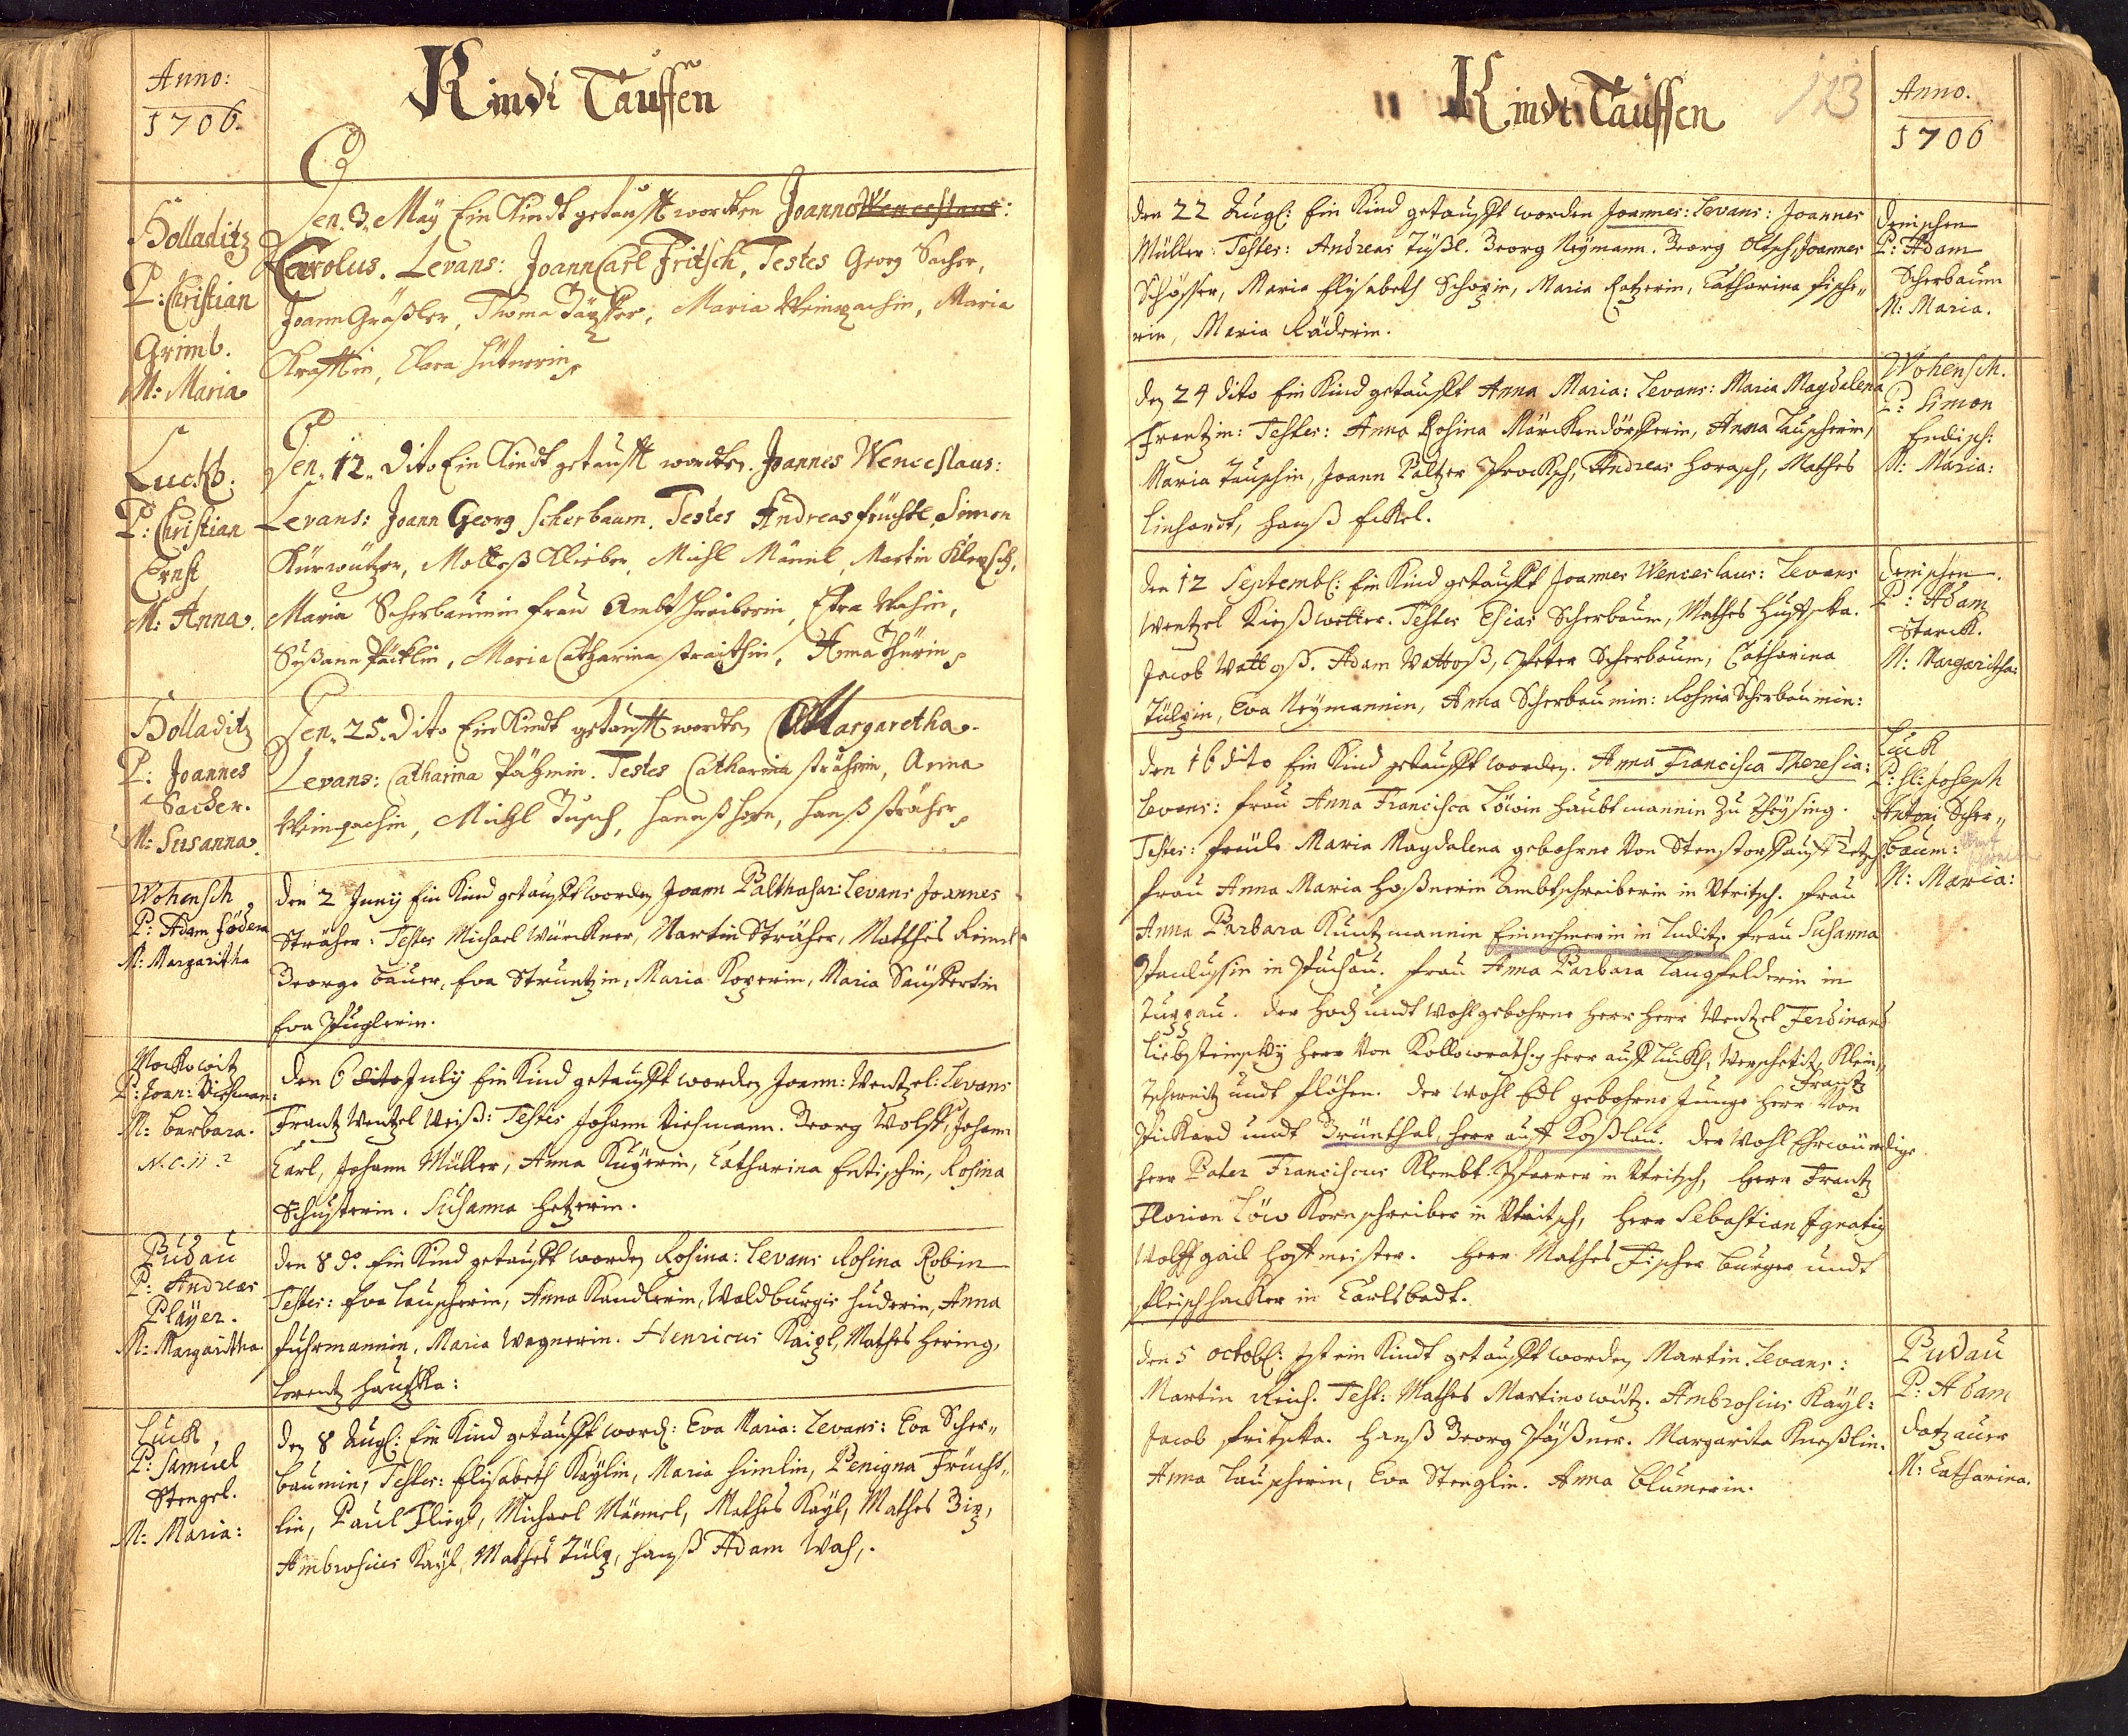 Anno:
1706.
Kindt Tauffen
Holladitz
P: Christian
Grimb.
M: Maria
Den. 3. Maÿ Ein Kindt getaufft wordten Joannes Wenceslaus:
Carolus. Levans: Joann Carl Fritsch, Testes Georg Sacher,
Joann Gräßler, Thoma, Maria Weinpachin, Maria
Krafftin, Clara Hütnerin
Luckh.
P: Christian
Ernst
M: Anna.
Den. 12. Dito Ein Kindt getaufft wordten. Joannes Wenceslaus:
Levans: Joann Georg Scherbaum. Testes Andreas Früchtl, Simon
Kürwützer, Mattheß Klieber, Michl Männl, Martin Klepsch,
Maria Scherbaumin Frau Ambtschreiberin, Eva Wahin,
Sußann Päcklin, Maria Catharina, Anna Thürin
Holladitz
P: Joannes
Sacher.
M: Susanna.
Den. 25. Dito Ein Kindt getaufft wordten Margaretha.
Levans: Catharina. Testes Catharina Sträherin, Anna
Weinpachin, Michl Tusch, Hannß Horn, Hanß Sträher
Wohensch
P: Adam Födera
M: Margaritha
Den 2 Junÿ Ein Kind getaufft worden Joann Balthasar: Levans Joannes
Sträher: Testes Michael Würckner, Martin Sträher, Matthes Reindl
Georg Bauer, Eva Struntzin, Maria Kozerin, Maria Säuffertin
Eva Puglerin.
Mockowitz
P: Joan: Viehman:
M: Barbara.
N. C. 11 ?
Den 6 dito July Ein Kind getaufft worden Joann: Wentzel: Levans
Frantz Wentzel Weiß: Testes Johann Viehmann. Georg Wolff, Johann
Carl, Johann Müller, Anna Kugerin, Catharina Entischin, Rosina
Schusterin. Susanna Hetzerin.
Pudau
P: Andreas
Player.
M: Margaritha.
Den 8 do. Ein Kind getaufft worden Rosina: Levans Rosina Robin
Testes: Eva Tauscherin, Anna Kandlerin, Waldburgis Huderin, Anna
Fuhrmannin, Maria Wagnerin. Henricus Kaigl, Mathes Hering,
Lorentz Hautzka:
Luck,
P: Samuel
Stengel.
M: Maria:
Den 8 Aug: Ein Kind getaufft word: Eva Maria: Levans: Eva Scher„
baumin, Testes: Elisabeth Kaÿlin, Maria Himlin, Benigna Frücht„
lin, Paul Fliegl, Michael Männel, Mathes Kaÿl, Mathes Zitz,
Ambrosius Kaÿl, Mathes Tültz, Hanß Adam Wah,.
Kindt Tauffen
123
Anno.
1706
Den 22 Aug: Ein Kind getaufft worden Joannes: Levans: Joannes
Müller: Testes: Andreas Tüßl. Georg Neÿmann. Georg Oltsch, Joannes
Schösser, Maria Elisabeth, Maria Ratzerin, Catharina Fische„
rin, Maria Räderin.
Denischen
P: Adam
Scherbaum
M: Maria.
Den 24 dito Ein Kind getaufft Anna Maria: Levans: Maria Magdalena
Frantzin: Testes: Anna Rosina Märckendörfferin, Anna Tauscherin,
Maria Tauschin, Joann Baltzer Procksch, Andreas Horasch, Mathes
Linhardt, Hanß Eckel.
Wohensch.
P: Simon
Endisch:
M: Maria:
Den 12 Septemb: Ein Kind getaufft Joannes Wenceslaus: Levans
Wentzel Kießwetter. Testes Elias Scherbaum, Mathes Hützka.
Jacob Wattoß. Adam Wattoß, Peter Scherbaum, Catharina
Tültzin, Eva Neÿmannin, Anna Scherbaumin: Rosina Scherbaumin:
Denischen.
P: Adam
Starck.
M: Margaritha:
Den 16 dito Ein Kind getaufft worden. Anna Francisca Theresia:
Levans: Frau Anna Francisca Löwin Haubtmannin zu Theÿsing.
Testes: Freüle Maria Magdalena gebohrne Von Stenstorff
Frau Anna Maria Hoßnerin Ambtschreiberin in Utwitsch. Frau
Anna Barbara Kuntzmannin Einnehmerin in Luditz. Frau Susanna
Paulussin in Puchau. Frau Anna Barbara Langfelderin in
Luggau. Der Hoch undt Wohlgebohrne Herr Herr Wentzel Ferdinand
Liebsteinskÿ Herr Von Kollowrath, Herr auff Luckh, Werscheditz, Klein„
Tschernitz undt Flöhen. Der Wohl Edl gebohrne Junge Herr Frantz Von
Pickard undt Grünthal, Herr auff Koßlau. Der Wohl Ehrwürdige
Herr Pater Franciscus Klembt. Pfarrer in Utwitsch, Herr Frantz
Florian Löw Kornschreiber in Utwitsch, Herr Sebastian Ignatiÿ
Wolffgail Hoffmeister. Herr Mathes Fischer Burger undt
Fleischhacker in Carlsbadt.
Luck
P: H: Joseph
Antoni Scher„
baum:
M: Maria:
Den 5 octob: Ist ein Kindt getaufft worden Martin. Levans:
Martin Reich. Test: Mathes Martinowütz. Ambrosius Kaÿl:
Jacob Pritschka. Hanß Georg Päßner. Margarita Kneßlin.
Anna Tauscherin, Eva Stenglin. Anna Blumerin.
Pudau
P: Adam
Datzauer
M: Catharina.